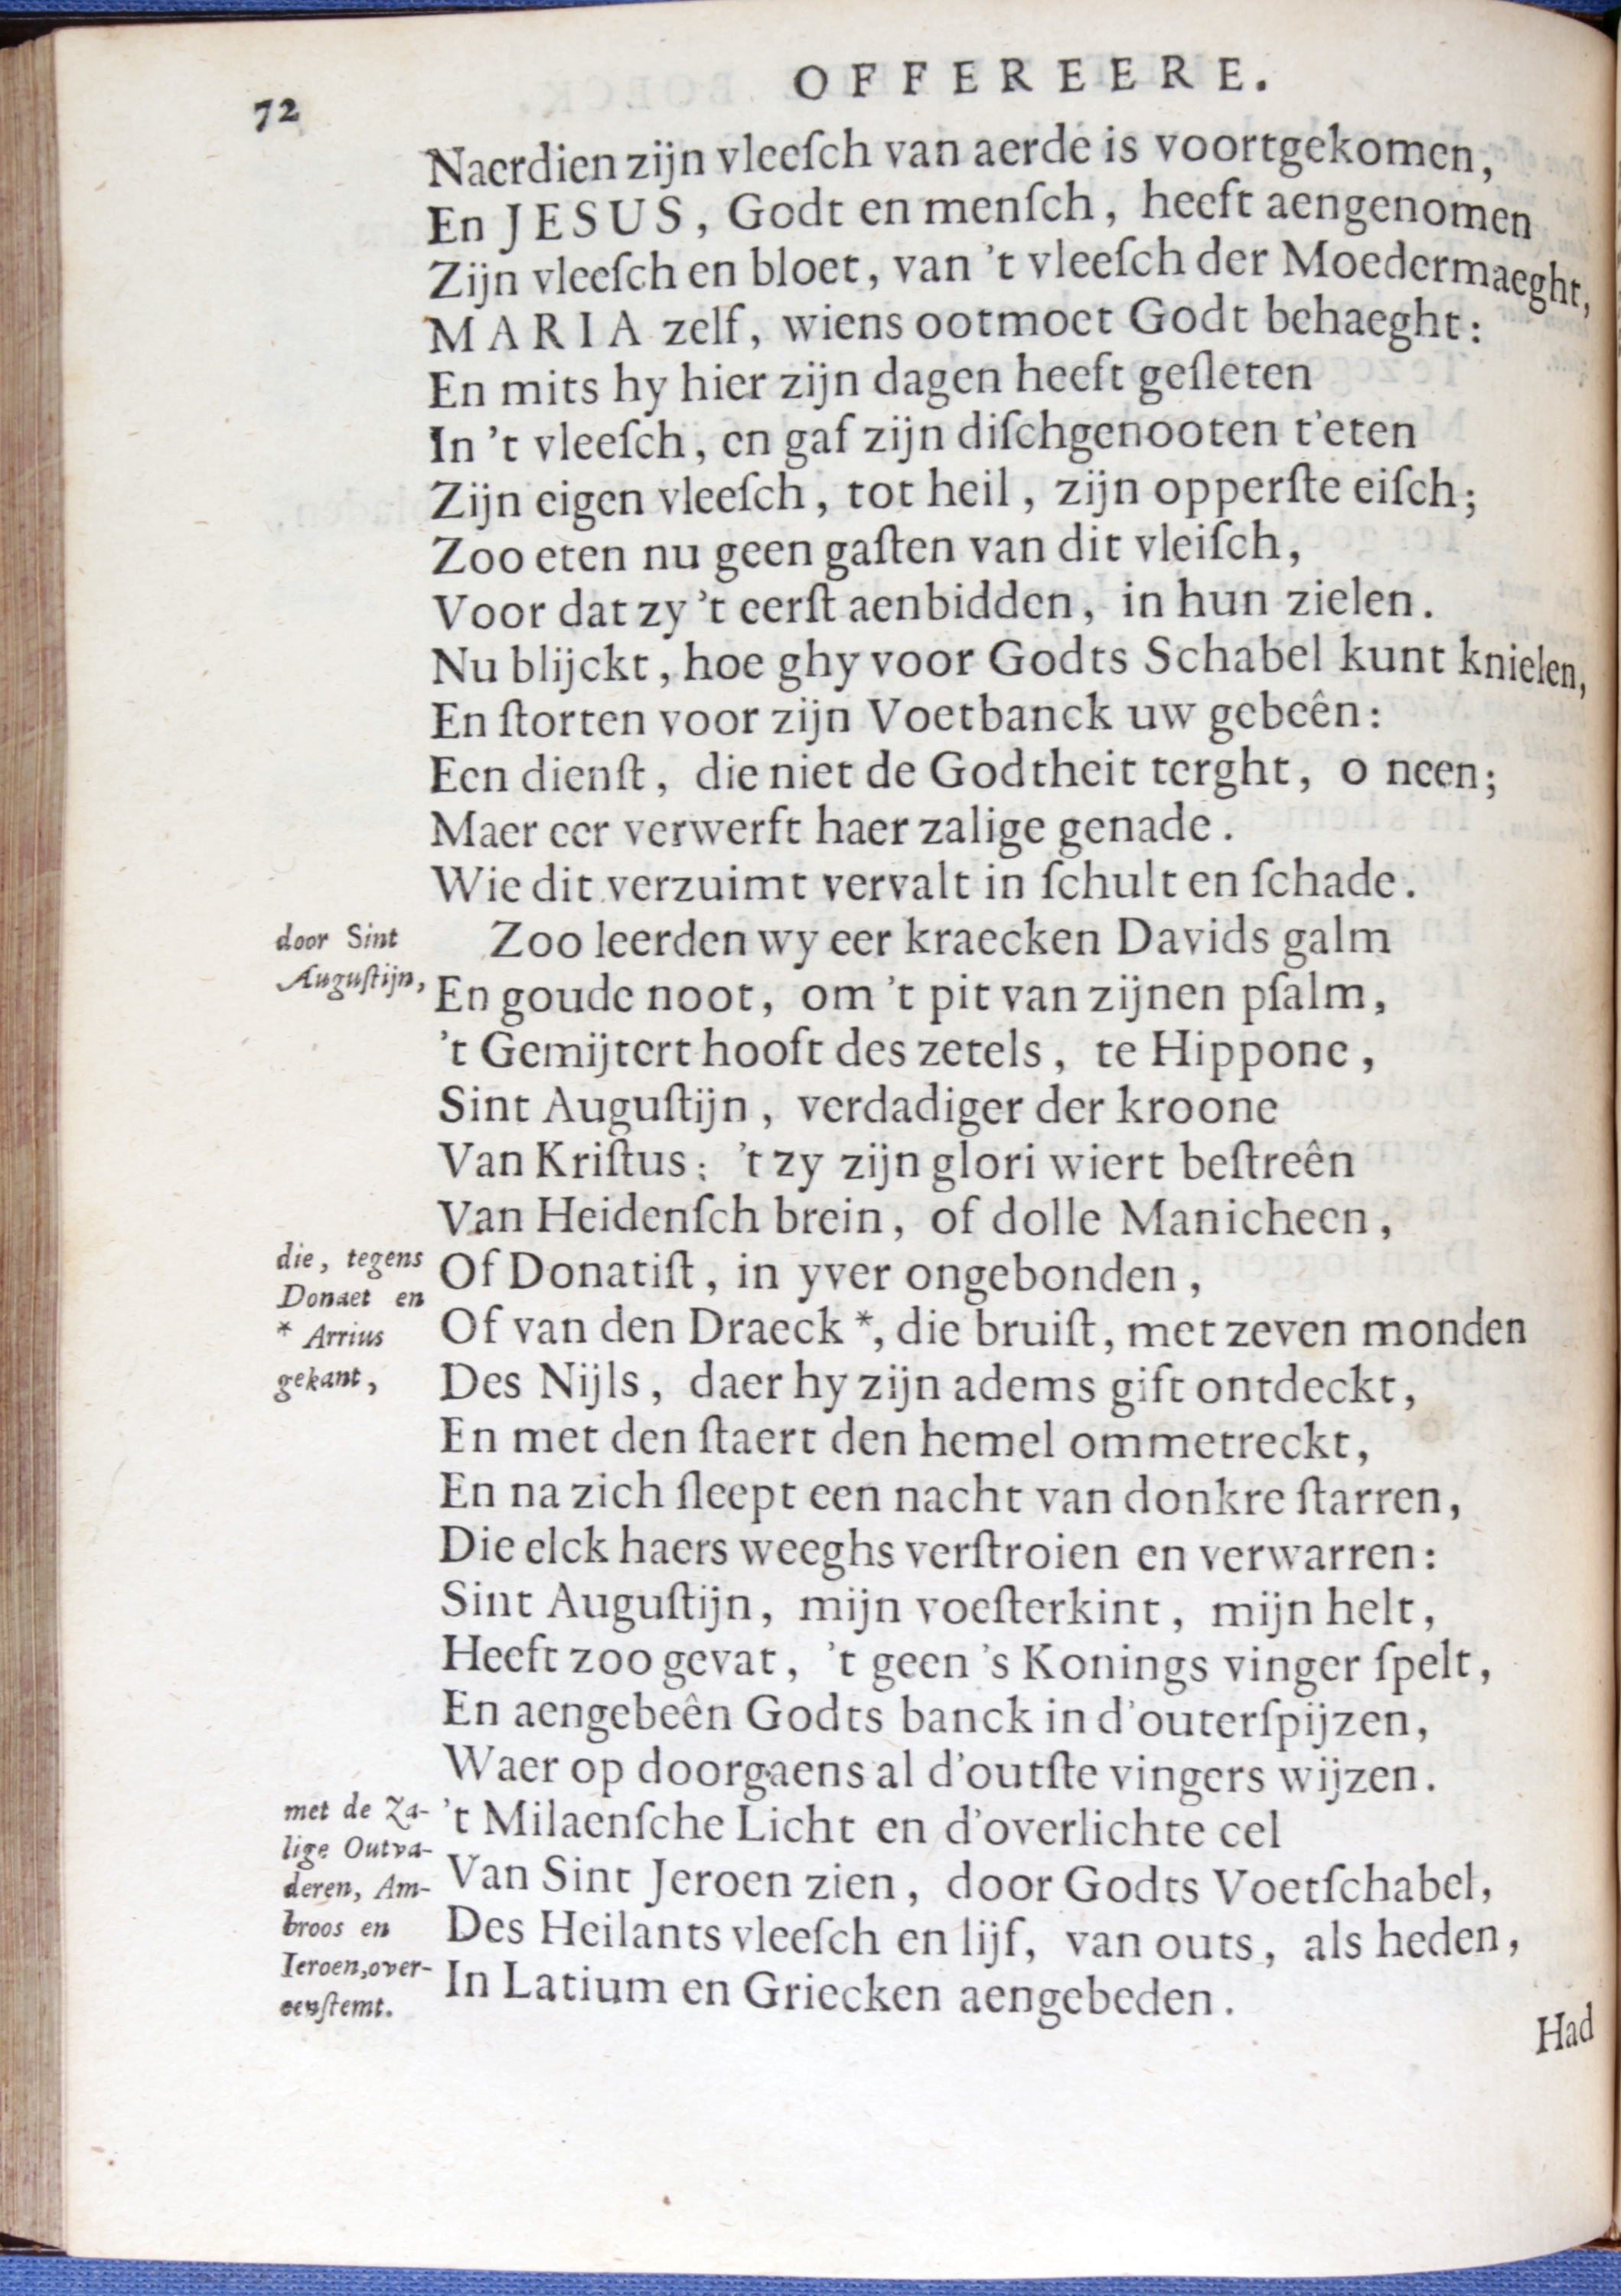 72
OFFEREERE.
Naerdien zijn vleeſch van aerde is voortgekomen,
En JESUS, Godt en menſch, heeft aengenomen
Zijn vleeſch en bloet, van 't vleeſch der Moedermaeght,
MARIA zelf, wiens ootmoet Godt behaeght:
En mits hy hier zijn dagen heeft geſleten
In 't vleeſch, en gaf zijn diſchgenooten t'eten
Zijn eigen vleeſch, tot heil, zijn opperſte eiſch;
Zoo eten nu geen gaſten van dit vleiſch,
Voor dat zy 't eerſt aenbidden, in hun zielen.
Nu blijckt, hoe ghy voor Godts Schabel kunt knielen,
En ſtorten voor zijn Voetbanck uw gebeên:
Een dienſt, die niet de Godtheit terght, o neen;
Maer eer verwerft haer zalige genade.
Wie dit verzuimt vervalt in ſchult en ſchade.
door Sint
Auguſtijn,
Zoo leerden wy eer kraecken Davids galm
En goude noot, om 't pit van zijnen pſalm,
't Gemijtert hooft des zetels, te Hippone,
Sint Auguſtijn, verdadiger der kroone
Van Kriſtus; 't zy zijn glori wiert beſtreên
Van Heidenſch brein, of dolle Manicheen,
die, tegens
Donaet en
* Arrius
gekant,
Of Donatiſt, in yver ongebonden,
Of van den Draeck *, die bruiſt, met zeven monden
Des Nijls, daer hy zijn adems gift ontdeckt,
En met den ſtaert den hemel ommetreckt,
En na zich ſleept een nacht van donkre ſtarren,
Die elck haers weeghs verſtroien en verwarren:
Sint Auguſtijn, mijn voeſterkint, mijn helt,
Heeft zoo gevat, 't geen 's Konings vinger ſpelt,
En aengebeên Godts banck in d'outerſpijzen,
Waer op doorgaens al d'outſte vingers wijzen.
met de Za-
lige Outva-
deren, Am-
broos en
Ieroen,over-
eenſtemt.
't Milaenſche Licht en d'overlichte cel
Van Sint Jeroen zien, door Godts Voetſchabel,
Des Heilants vleeſch en lijf, van outs, als heden,
In Latium en Griecken aengebeden.
Had